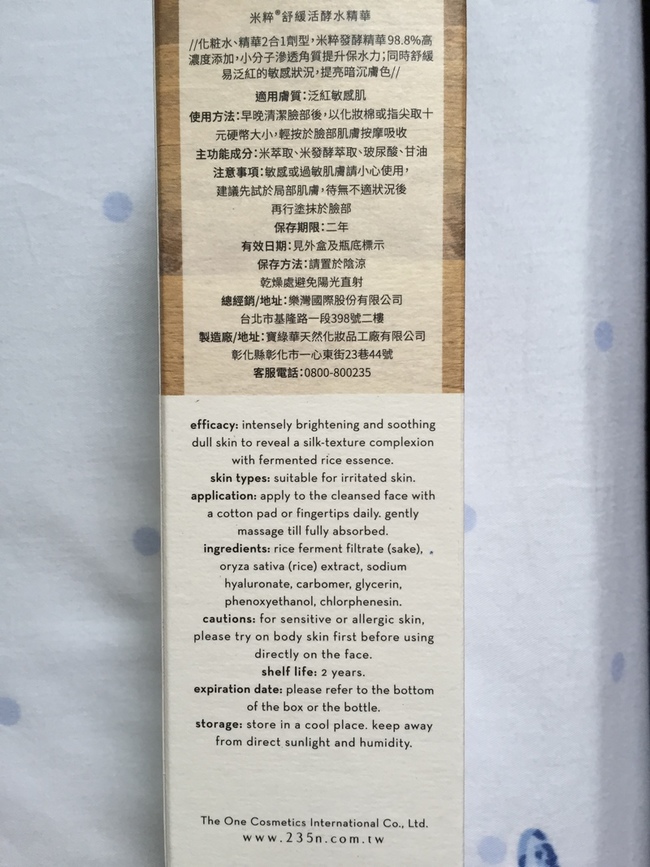 米粹®舒緩活酵水精華
//化粧水、精華2合1劑型，米粹發酵精華98.8%高
濃度添加，小分子滲透角質提升保水力；同時舒緩
易泛紅的敏感狀況，提亮暗沉膚色//
適用膚質：泛紅敏感肌
使用方法：早晚清潔臉部後，以化妝棉或指尖取十
元硬幣大小，輕按於臉部肌膚按摩吸收
主功能成分：米萃取、米發酵萃取、玻尿酸、甘油
注意事項：敏感或過敏肌膚請小心使用，
建議先試於局部肌膚，待無不適狀況後
再行塗抹於臉部
保存期限：二年
有效日期：見外盒及瓶底標示
保存方法：請置於陰涼
乾燥處避免陽光直射
總經銷/地址：樂灣國際股份有限公司
台北市基隆路一段398號二樓
製造廠/地址：寶綠華天然化妝品工廠有限公司
彰化縣彰化市一心東街23巷44號
客服電話：0800-800235
efficacy: intensely brightening and soothing
dull skin to reveal a silk-texture complexion
with fermented rice essence.
skin types: suitable for irritated skin.
application: apply to the cleansed face with
a cotton pad or fingertips daily. gently
massage till fully absorbed.
ingredients: rice ferment filtrate (sake),
oryza sativa (rice) extract, sodium
hyaluronate, carbomer, glycerin,
phenoxyethanol, chlorphenesin.
cautions: for sensitive or allergic skin,
please try on body skin first before using
directly on the face.
shelf life: 2 years.
expiration date: please refer to the bottom
of the box or the bottle.
storage: store in a cool place. keep away
from direct sunlight and humidity.
The One Cosmetics International Co., Ltd.
www.235n.com.tw